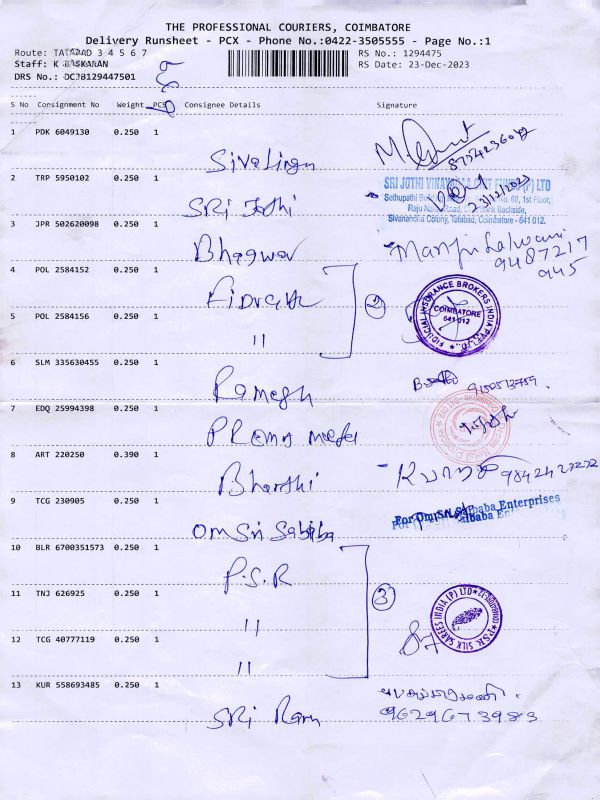 THE PROFESSIONAL COURIERS, COIMBATORE
Delivery Runsheet - PCX - Phone No.:0422-3505555 - Page No.:1
Route: TATABAD 3 4 5 6 7
RS No.: 1294475
Staff: K BASKARAN
RS Date: 23-Dec-2023
DRS No.: OCJB129447501
S No Consignment No Weight PCS Consignee Details Signature
1 PDK 6049130 0.250 1
Sivalingn
2 TRP 5950102 0.250 1
SRI Jothi
SRI JOTHI VINAYAGAA CHIT FUNDS (P) LTD
No. 60, 1st Floor,
Backside,
Sivanandha Colony, Tatabad, Coimbatore - 641 012.
23/12/2023
3 JPR 502620098 0.250 1
Bhagwav
Manju Lalwani
9487217
945
4 POL 2584152 0.250 1
2
FIDUCIAL INSURANCE BROKERS INDIA PVT. LTD.
COIMBATORE
641 012
5 POL 2584156 0.250 1
"
6 SLM 335630455 0.250 1
Ramesh
7 EDQ 25994398 0.250 1
PRema
8 ART 220250 0.390 1
Bharthi
9 TCG 230905 0.250 1
Om Sri Sabiba
For Om Sri Saibaba Enterprises
10 BLR 6700351573 0.250 1
P.S.R
3
P.S.R. SILK SAREES INDIA (P) LTD
11 TNJ 626925 0.250 1
"
12 TCG 40777119 0.250 1
"
13 KUR 558693485 0.250 1
SRi Ram
9629673983